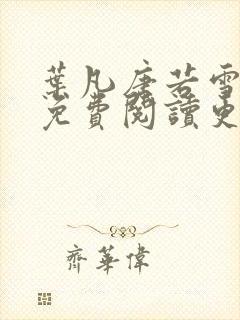 葉凡唐若雪
免費閱讀更
齊華偉